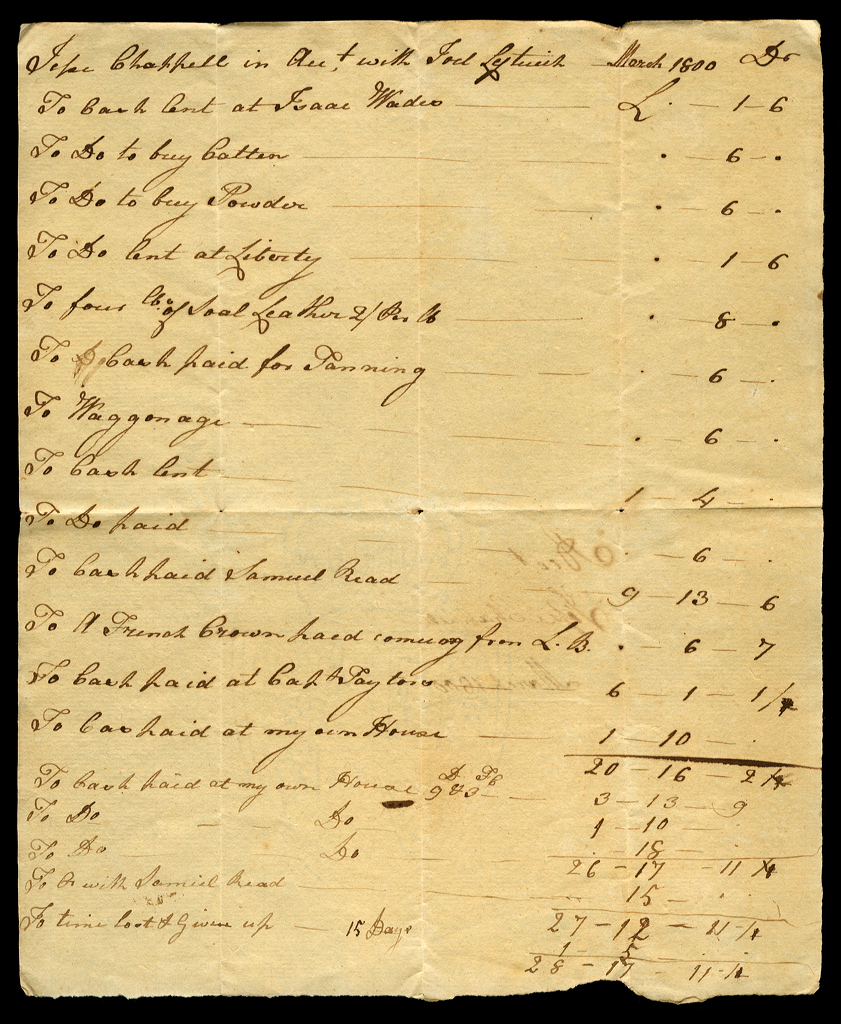 Jesse Chappell in Acct with Joel Leftwich — March 1800 Dr
To Cash lent at Isaac Wades — L . — 1 — 6
To Do to buy Cotten — . — 6 — .
To Do to buy Powder — . — 6 — .
To Do lent at Liberty — . 1 — 6
To four lbs of Soal Leather 2/ Pr lb — . — 8 — .
To Cash paid for Tanning — . — 6 — .
To Waggonage — . — 6 — .
To Cash lent — 1 — 4 — .
To Do paid — . — 6 — .
To Cash paid Samuel Read — 9 — 13 — 6
To A French Crown paid comeing from L. B. . — 6 — 7
To Cash paid at Capt Paytons — 6 — 1 — 1/4
To Cash paid at my own House — 1 — 10 — .
20 — 16 — 2 1/4
To Cash paid at my own House 9 & 3 — 3 — 13 — 9
To Do — — Do 1 — 10 — .
To Do — Do . — 18 — .
26 — 17 — 11 1/4
To Do with Samuel Read — 15 — .
27 — 12 — 11 1/4
To time lost & Given up — 15 Days 1 — 5
28 — 17 — 11 1/4